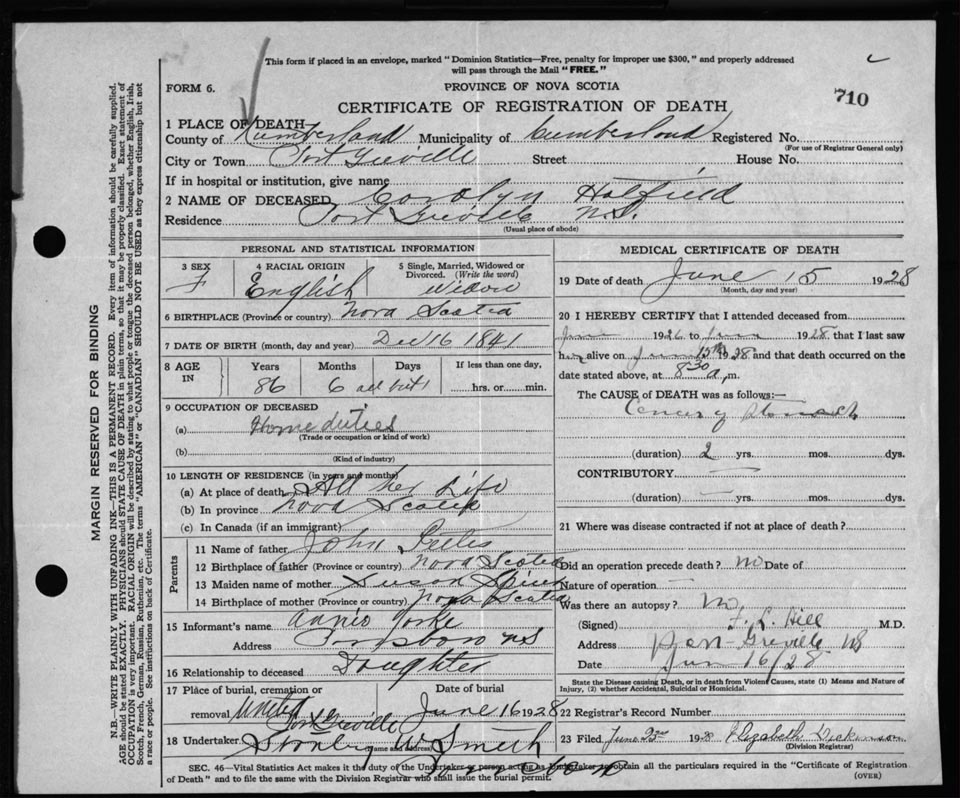 This form if placed in an envelope, marked "Dominion Statistics—Free, penalty for improper use $300," and properly addressed
will pass through the Mail "FREE."
FORM 6.
PROVINCE OF NOVA SCOTIA
CERTIFICATE OF REGISTRATION OF DEATH
710
1 PLACE OF DEATH
County of Cumberland Municipality of Cumberland Registered No.
(For use of Registrar General only)
City or Town Port Greville Street House No.
If in hospital or institution, give name
2 NAME OF DECEASED Carolyn Hatfield
Residence Port Greville N.S.
(Usual place of abode)
PERSONAL AND STATISTICAL INFORMATION
3 SEX 4 RACIAL ORIGIN 5 Single, Married, Widowed or Divorced. (Write the word)
F English Widow
6 BIRTHPLACE (Province or country) Nova Scotia
7 DATE OF BIRTH (month, day and year) Dec 16 1841
8 AGE IN Years Months Days If less than one day,
86 6 all but 1 hrs. or min.
9 OCCUPATION OF DECEASED
(a) Home duties
(Trade or occupation or kind of work)
(b)
(Kind of industry)
10 LENGTH OF RESIDENCE (in years and months)
(a) At place of death All her Life
(b) In province Nova Scotia
(c) In Canada (if an immigrant)
Parents
11 Name of father John
12 Birthplace of father (Province or country) Nova Scotia
13 Maiden name of mother Susan
14 Birthplace of mother (Province or country) Nova Scotia
15 Informant's name Annie Yorke
Address Parrsboro NS
16 Relationship to deceased Daughter
17 Place of burial, cremation or Date of burial
removal United Port Greville June 16 1928
18 Undertaker Smith
(Name and address)
MEDICAL CERTIFICATE OF DEATH
19 Date of death June 15 1928
(Month, day and year)
20 I HEREBY CERTIFY that I attended deceased from
June 1926 to June 1928 that I last saw
her alive on June 15th 1928 and that death occurred on
date stated above, at 8 30 a.m.
The CAUSE of DEATH was as follows:—
Cancer of Stomach
(duration) 2 yrs. mos. dys.
CONTRIBUTORY —
(duration) — yrs. mos. dys.
21 Where was disease contracted if not at place of death?
Did an operation precede death? No Date of
Nature of operation —
Was there an autopsy? No
(Signed) F. L. Hill M.D.
Address Port Greville NS
Date Jun 16/28
State the Disease causing Death, or in death from Violent Causes, state (1) Means and Nature of
Injury, (2) whether Accidental, Suicidal or Homicidal.
22 Registrar's Record Number
23 Filed June 23rd 1928 Elizabeth Dickinson
(Division Registrar)
SEC. 46—Vital Statistics Act makes it the duty of the Undertaker or person acting as Undertaker to obtain all the particulars required in the "Certificate of Registration
of Death" and to file the same with the Division Registrar who shall issue the burial permit.
(OVER)
MARGIN RESERVED FOR BINDING
N.B.—WRITE PLAINLY WITH UNFADING INK—THIS IS A PERMANENT RECORD. Every item of information should be carefully supplied.
AGE should be stated EXACTLY. PHYSICIANS should STATE CAUSE OF DEATH in plain terms, so that it may be properly classified. Exact statement of
OCCUPATION is very important. RACIAL ORIGIN will be described by stating to what people or tongue the deceased person belonged, whether English, Irish,
Scotch, French, German, Russian, Ruthenian, etc. The terms "AMERICAN" or "CANADIAN" SHOULD NOT BE USED as they express citizenship but not
a race or people. See instructions on back of Certificate.